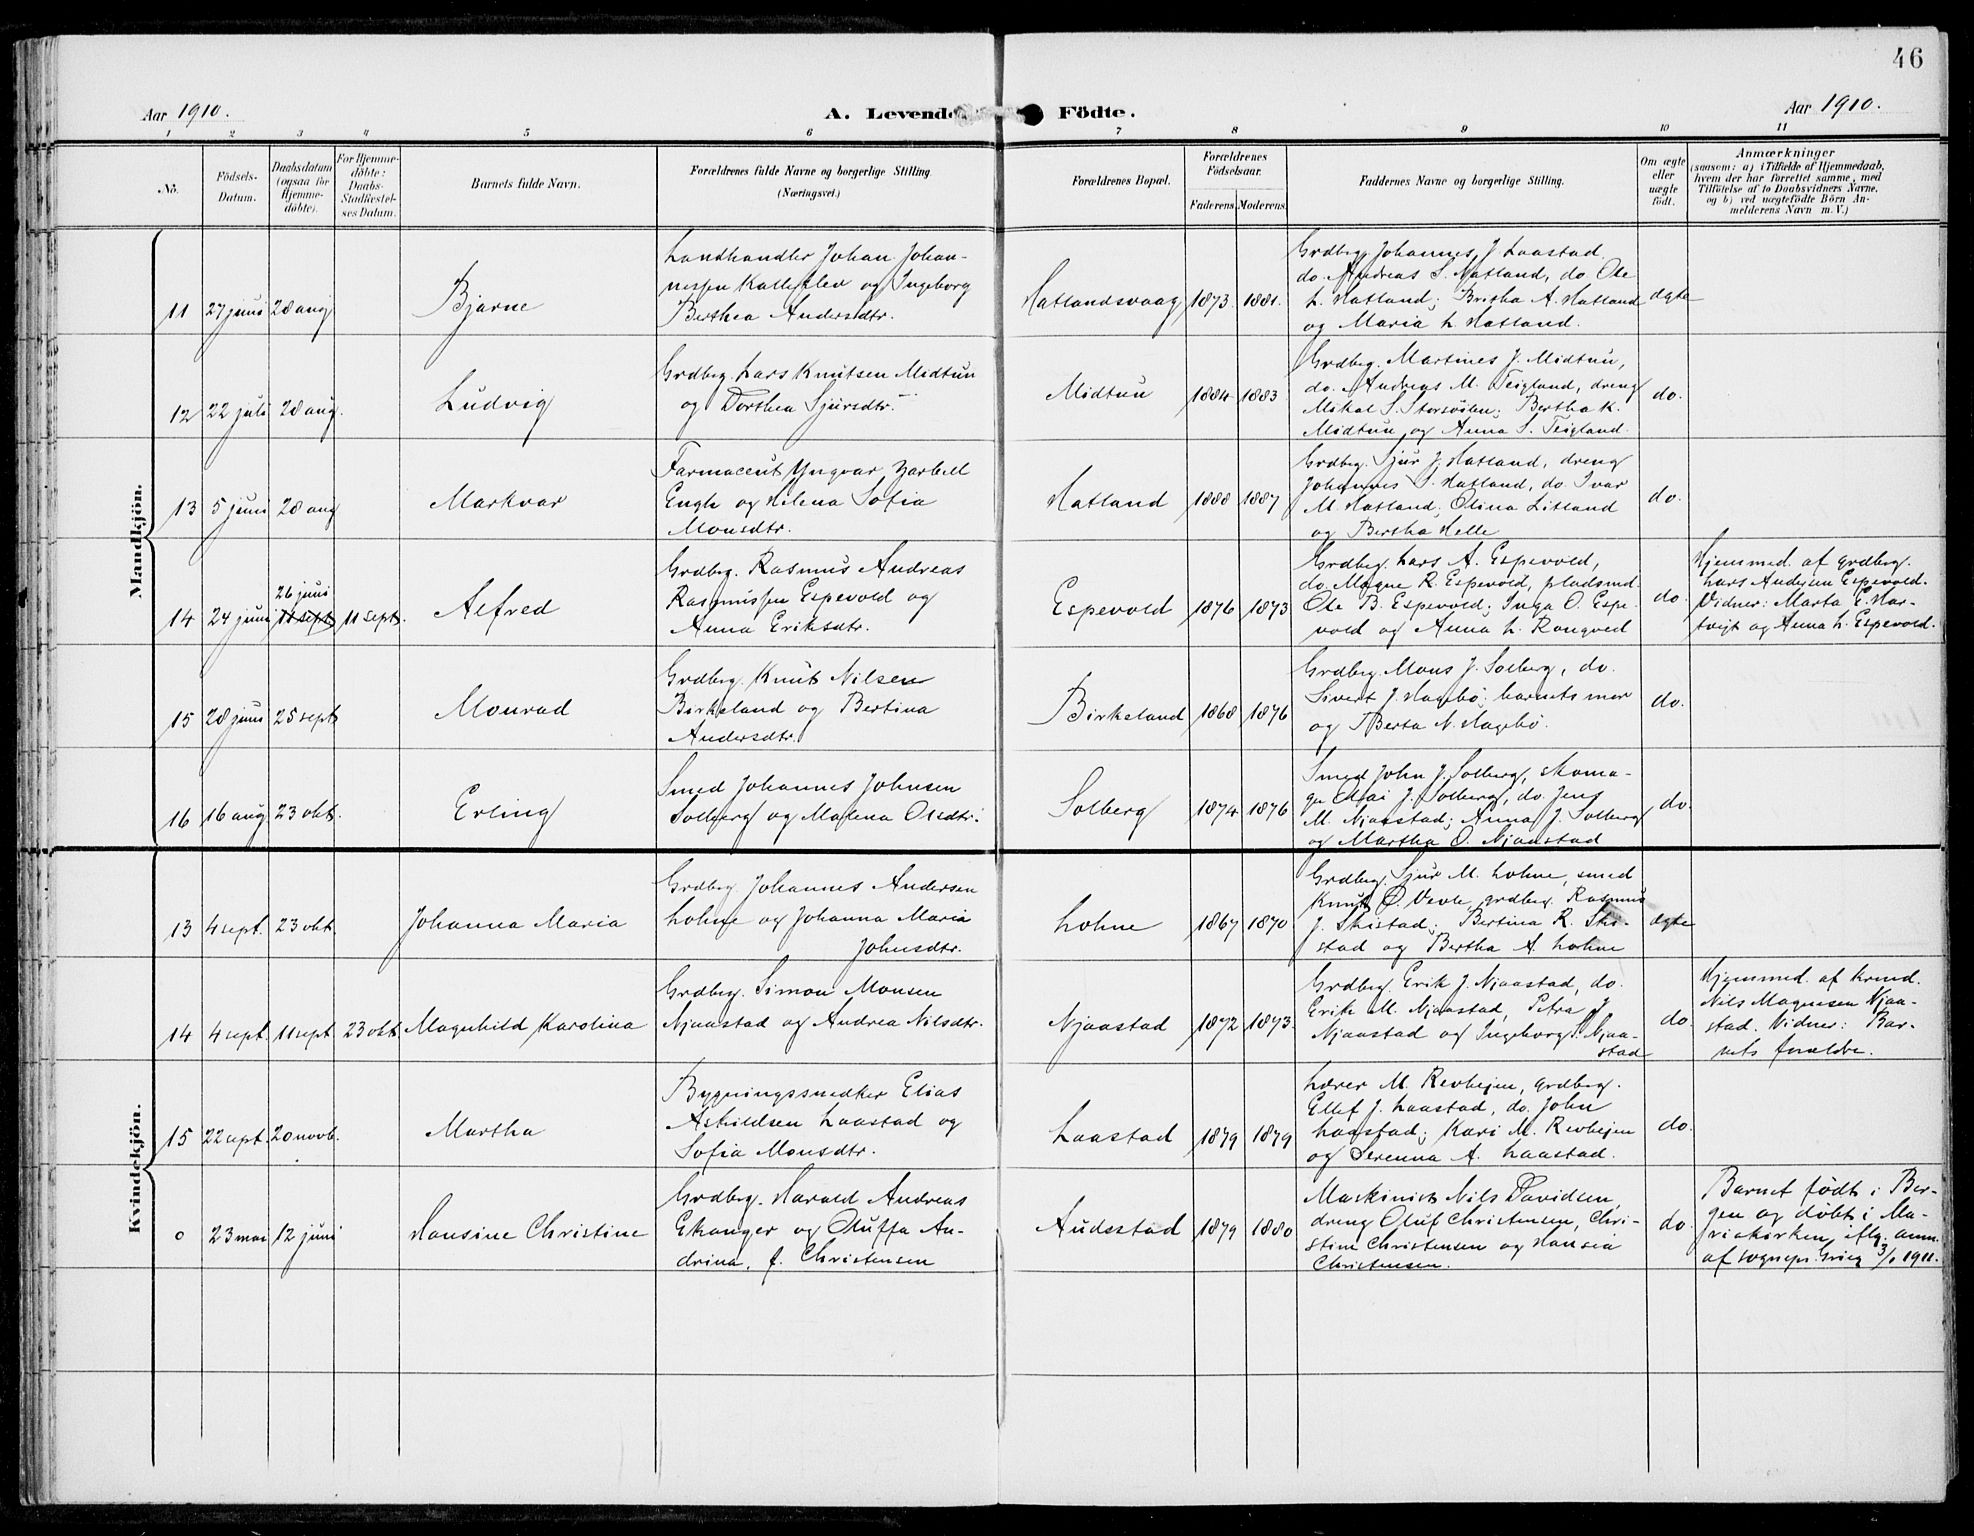 46
Aar 1910.
A. Levende Födte.
Aar 1910.
1 2 3 4 5 6 7 8 9 10 11
No.
Födsels-
Datum.
Daabsdatum
(ogsaa for
Hjemme-
döbte).
For Hjemme-
döbte:
Daabs-
Stadfæstel-
ses Datum.
Barnets fulde Navn.
Forældrenes fulde Navne og borgerlige Stilling
(Næringsvei.)
Forældrenes Bopæl.
Forældrenes
Födselsaar.
Faderens. Moderens.
Faddernes Navne og borgerlige Stilling.
Om ægte
eller
uægte
födt.
Anmærkninger
(saasom: a) i Tilfælde af Hjemmedaab,
hvem der har forrettet samme, med
Tilföielse af to Daabsvidners Navne,
og b) ved uægtefödte Börn An-
melderens Navn m. V.)
Mandkjön.
11 27 juni 28 aug
Bjarne
Landhandler Johan Johan-
nesen Kalleklev og Ingeborg
Berthea Andersdtr.
Hatlandsvaag 1873. 1881.
Grdbrg. Johannes J. Laastad.
do. Andreas S. Hatland, do Ole
L. Hatland; Britha A. Hatland
og Maria L. Hatland.
ægte
12 22 juli 28 aug.
Ludvig
Grdbrg. Lars Knutsen Midtun
og Dorthea Sjursdtr.
Midtun 1884 1883
Grdbrg. Martines J. Midtun,
do. Andreas M. Teigland, dreng
Mikal S. Storsöien; Bertha K.
Midtun og Anna S. Teigland.
do.
13 5 juni 28 aug
Markvar
Farmaceut Yngvar
Engh og Helena Sofia
Monsdtr.
Hatland 1888 1887
Grdbrg. Sjur J. Hatland, dreng
Johannes S. Hatland, do. Ivar
M. Hatland; Olina Litland
og Bertha Helle
do.
14 24 juni 26 juni
11 sept 11 sept.
Alfred
Grdbrg. Rasmus Andreas
Rasmussen Espevold og
Anna Eriksdtr.
Espevold 1876 1873
Grdbrg. Lars A. Espevold,
do. Magne R. Espevold, pladsmd.
Ole B. Espevold; Inga O. Espe-
vold og Anna L. Rongved
do.
Hjemmed. af grdbrg.
Lars Andersen Espevold.
Vidner: Marta E. Har-
tvigt og Anna L. Espevold.
15 28 juni 25 sept
Monrad
Grdbrg. Knut Nilsen
Birkeland og Bertina
Andersdtr.
Birkeland 1868 1876
Grdbrg. Mons J. Solberg, do.
Sivert J. Hagebö; barnets mor
og Berta N. Hagebö.
do.
16 16 aug 23 okt.
Erling
Smed Johannes Johnsen
Solberg og Malena Olsdtr.
Solberg 1874 1876
Smed John J. Solberg, skoma-
ger J. Solberg, do. Jens
M. Njaastad; Anna J. Solberg
og Martha O. Njaastad
do.
Kvindekjön.
13 4 sept. 23 okt.
Johanna Maria
Grdbrg. Johannes Andersen
Lohne og Johanna Maria
Johnsdtr.
Lohne 1867 1870
Grdbrg. Sjur M. Lohne, smed
Knut Ø. Vevle, grdbrg. Rasmus
J. Skistad; Bertina R. Ski-
stad og Bertha A. Lohne
ægte
14 4 sept. 11 sept 23 okt.
Magnhild Karolina
Grdbrg. Simon Monsen
Njaastad og Andrea Nilsdtr.
Njaastad 1872 1873.
Grdbrg. Erik J. Njaastad, do.
Erik M. Njaastad, Petra J.
Njaastad og Ingeborg S. Njaa-
stad
do.
Hjemmed. af
Nils Magnesen Njaa-
stad. Vidner: Bar-
nets forældre.
15 22 sept. 20 novb.
Martha
Bygningssnedker Elias
Askildsen Laastad og
Sofia Monsdtr.
Laastad 1879 1879
Lærer M. Revheim, grdbrg.
Ellef J. Laastad, do. John
Laastad; Kari M. Revheim
og Serenna A. Laastad.
do.
0 23 mai 12 juni
Hansine Christine
Grdbrg. Harald Andreas
Ekanger og Oluffa An-
drina, f. Christensen
Audestad 1879 1880
Maskinist Nils Davidsen,
dreng Oluf Christensen, Chri-
stine Christensen og Hansia
Christensen.
do.
Barnet födt i Ber-
gen og döbt i Ma-
riakirken, iflg. anm.
af sognepr. Grieg 3/1 1911.